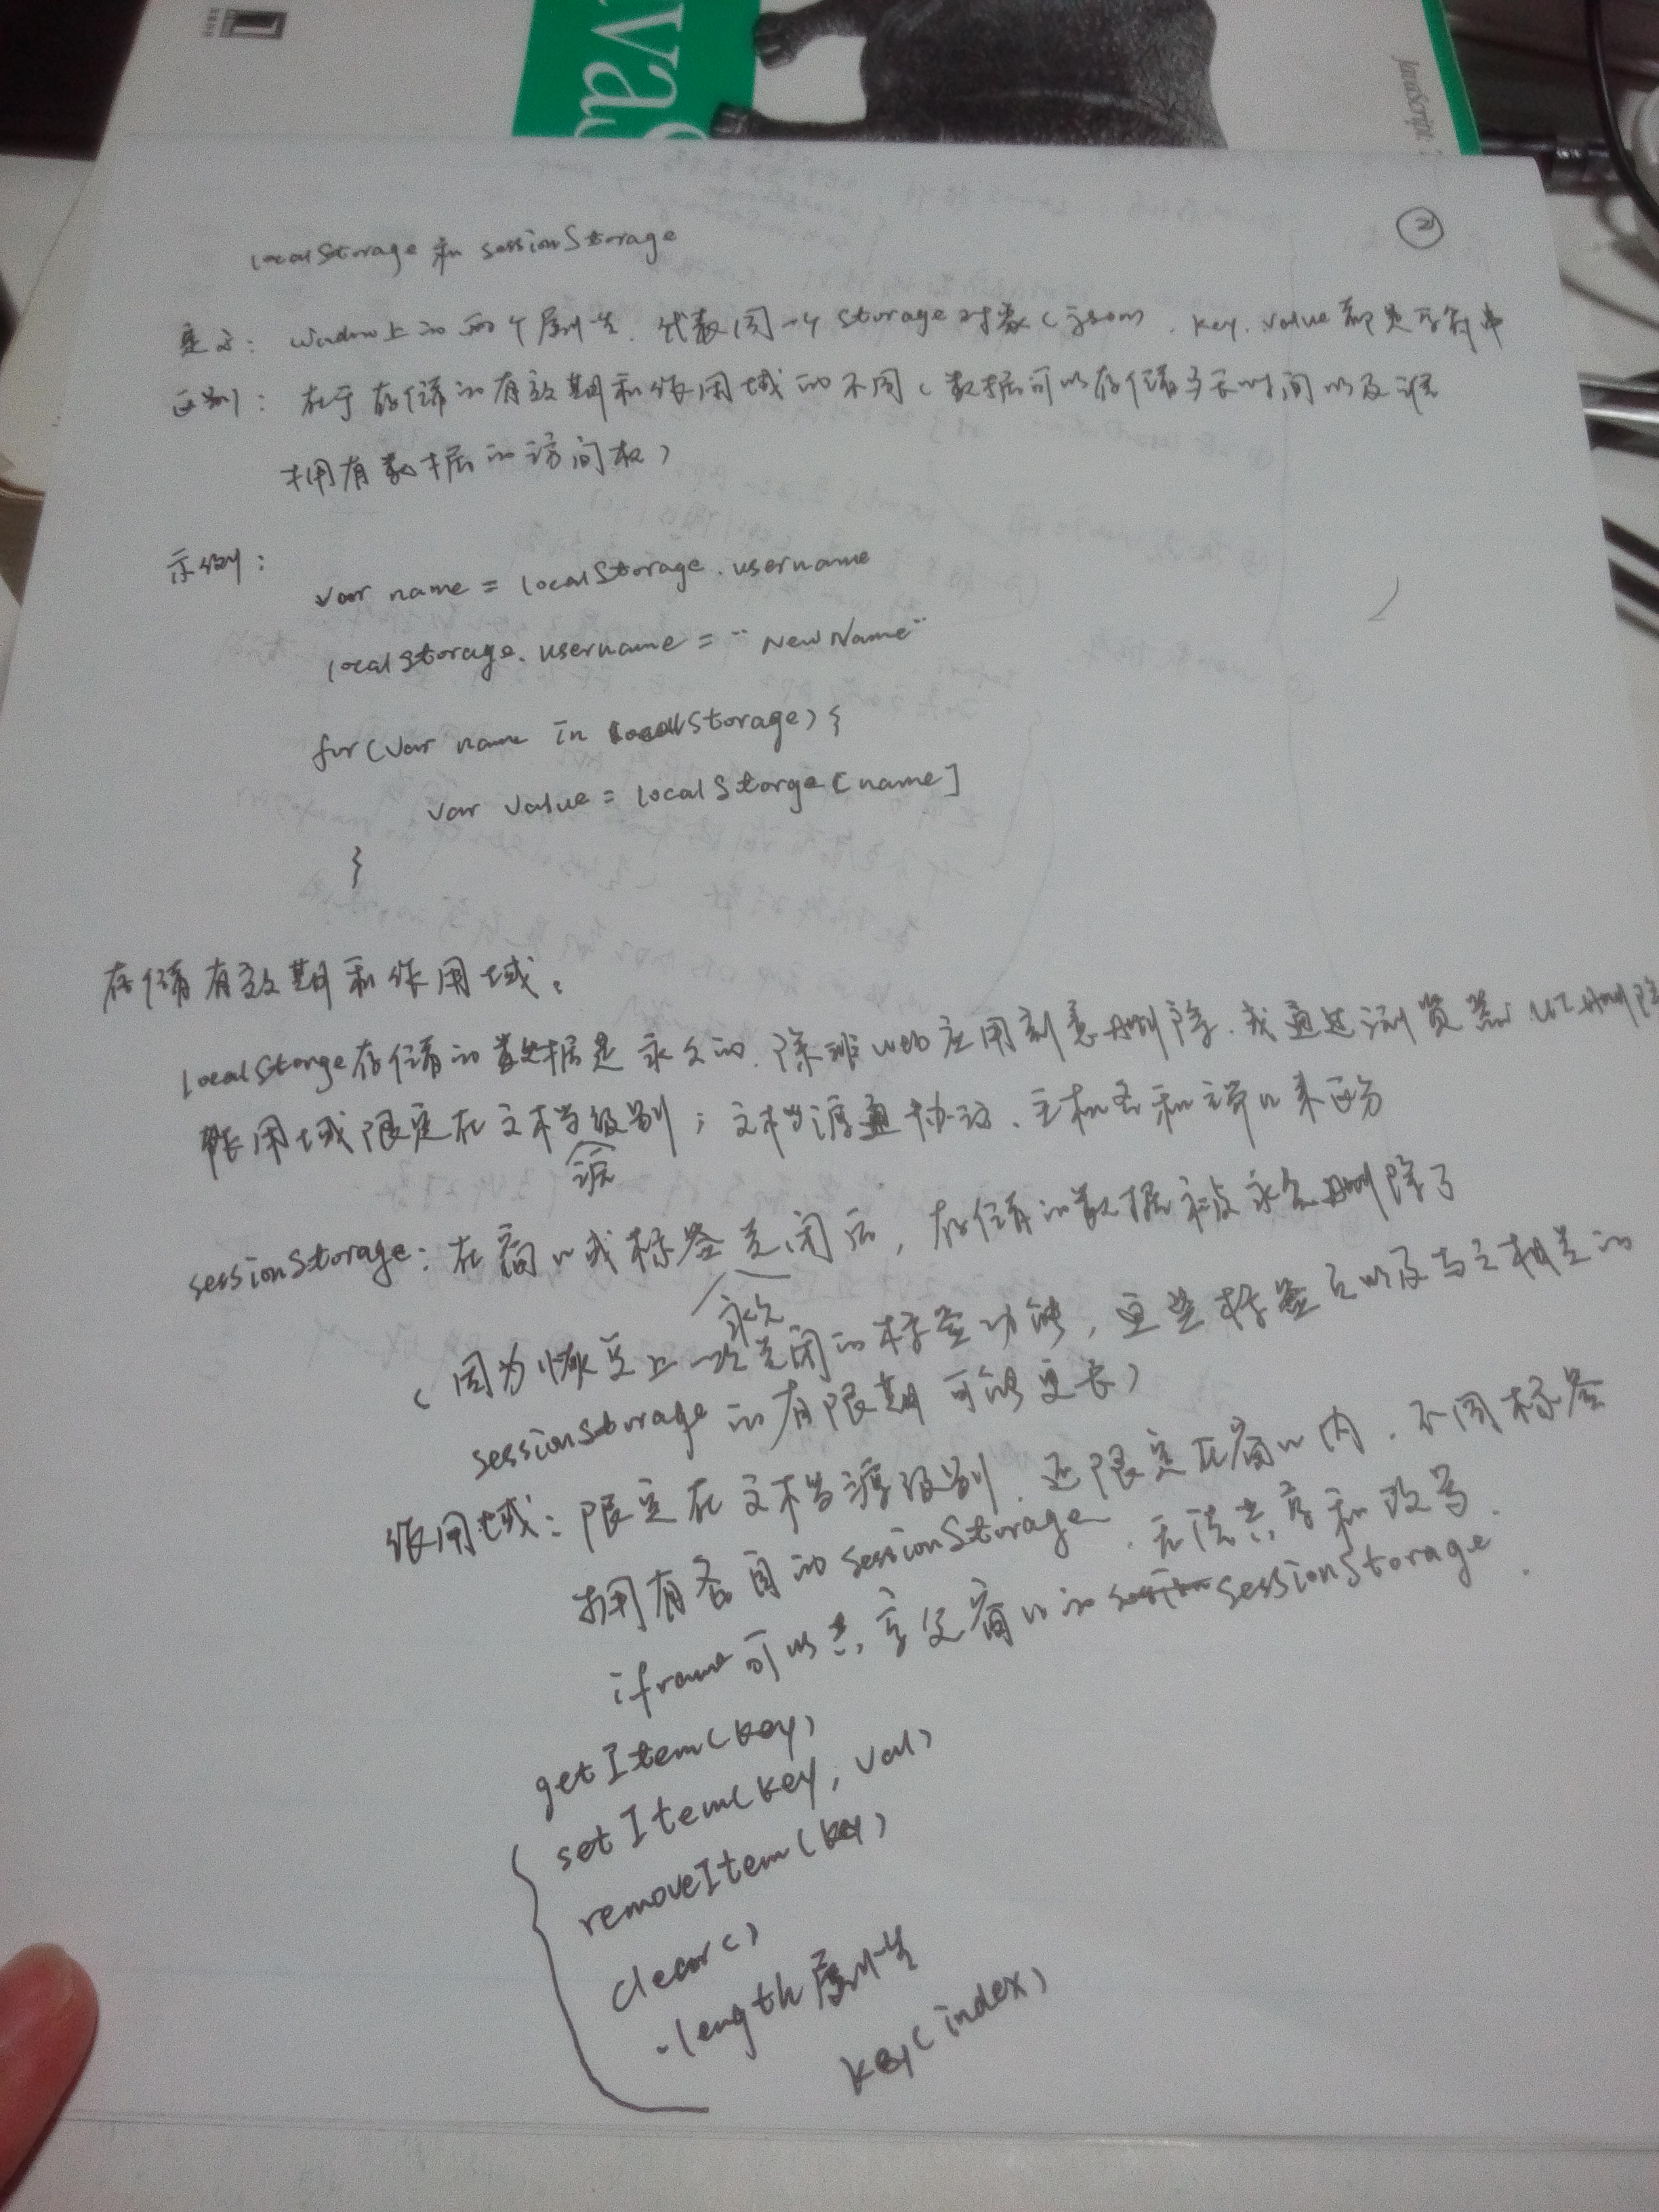 Java
JavaScript
②
localStorage 和 sessionStorage
定义: window上的两个属性. 代表同一个 Storage 对象 (json). key. value 都是字符串
区别: 在于存储的有效期和作用域的不同 (数据可以存储多长时间以及谁
拥有数据的访问权)
示例:
var name = localStorage.username
localStorage.username = "NewName"
for(var name in localStorage){
var value = localStorge[name]
}
存储有效期和作用域:
localStorge存储的数据是永久的. 除非web应用刻意删除. 或通过浏览器 UI删除
作用域限定在文档源级别; 文档源通协议、主机名和端口来区分
sessionStorage: 在窗口或标签永久关闭后, 存储的数据被永久删除了
(因为恢复上一次关闭的标签功能, 这些标签页以及与之相关的
sessionStorage的有限期可能更长)
作用域: 限定在文档源级别. 还限定在窗口内. 不同标签
拥有各自的sessionStorage. 无法共享和改写.
iframe可以共享父窗口的sessionStorage.
getItem(key)
setItem(key, val)
removeItem(key)
clear()
.length属性
key(index)